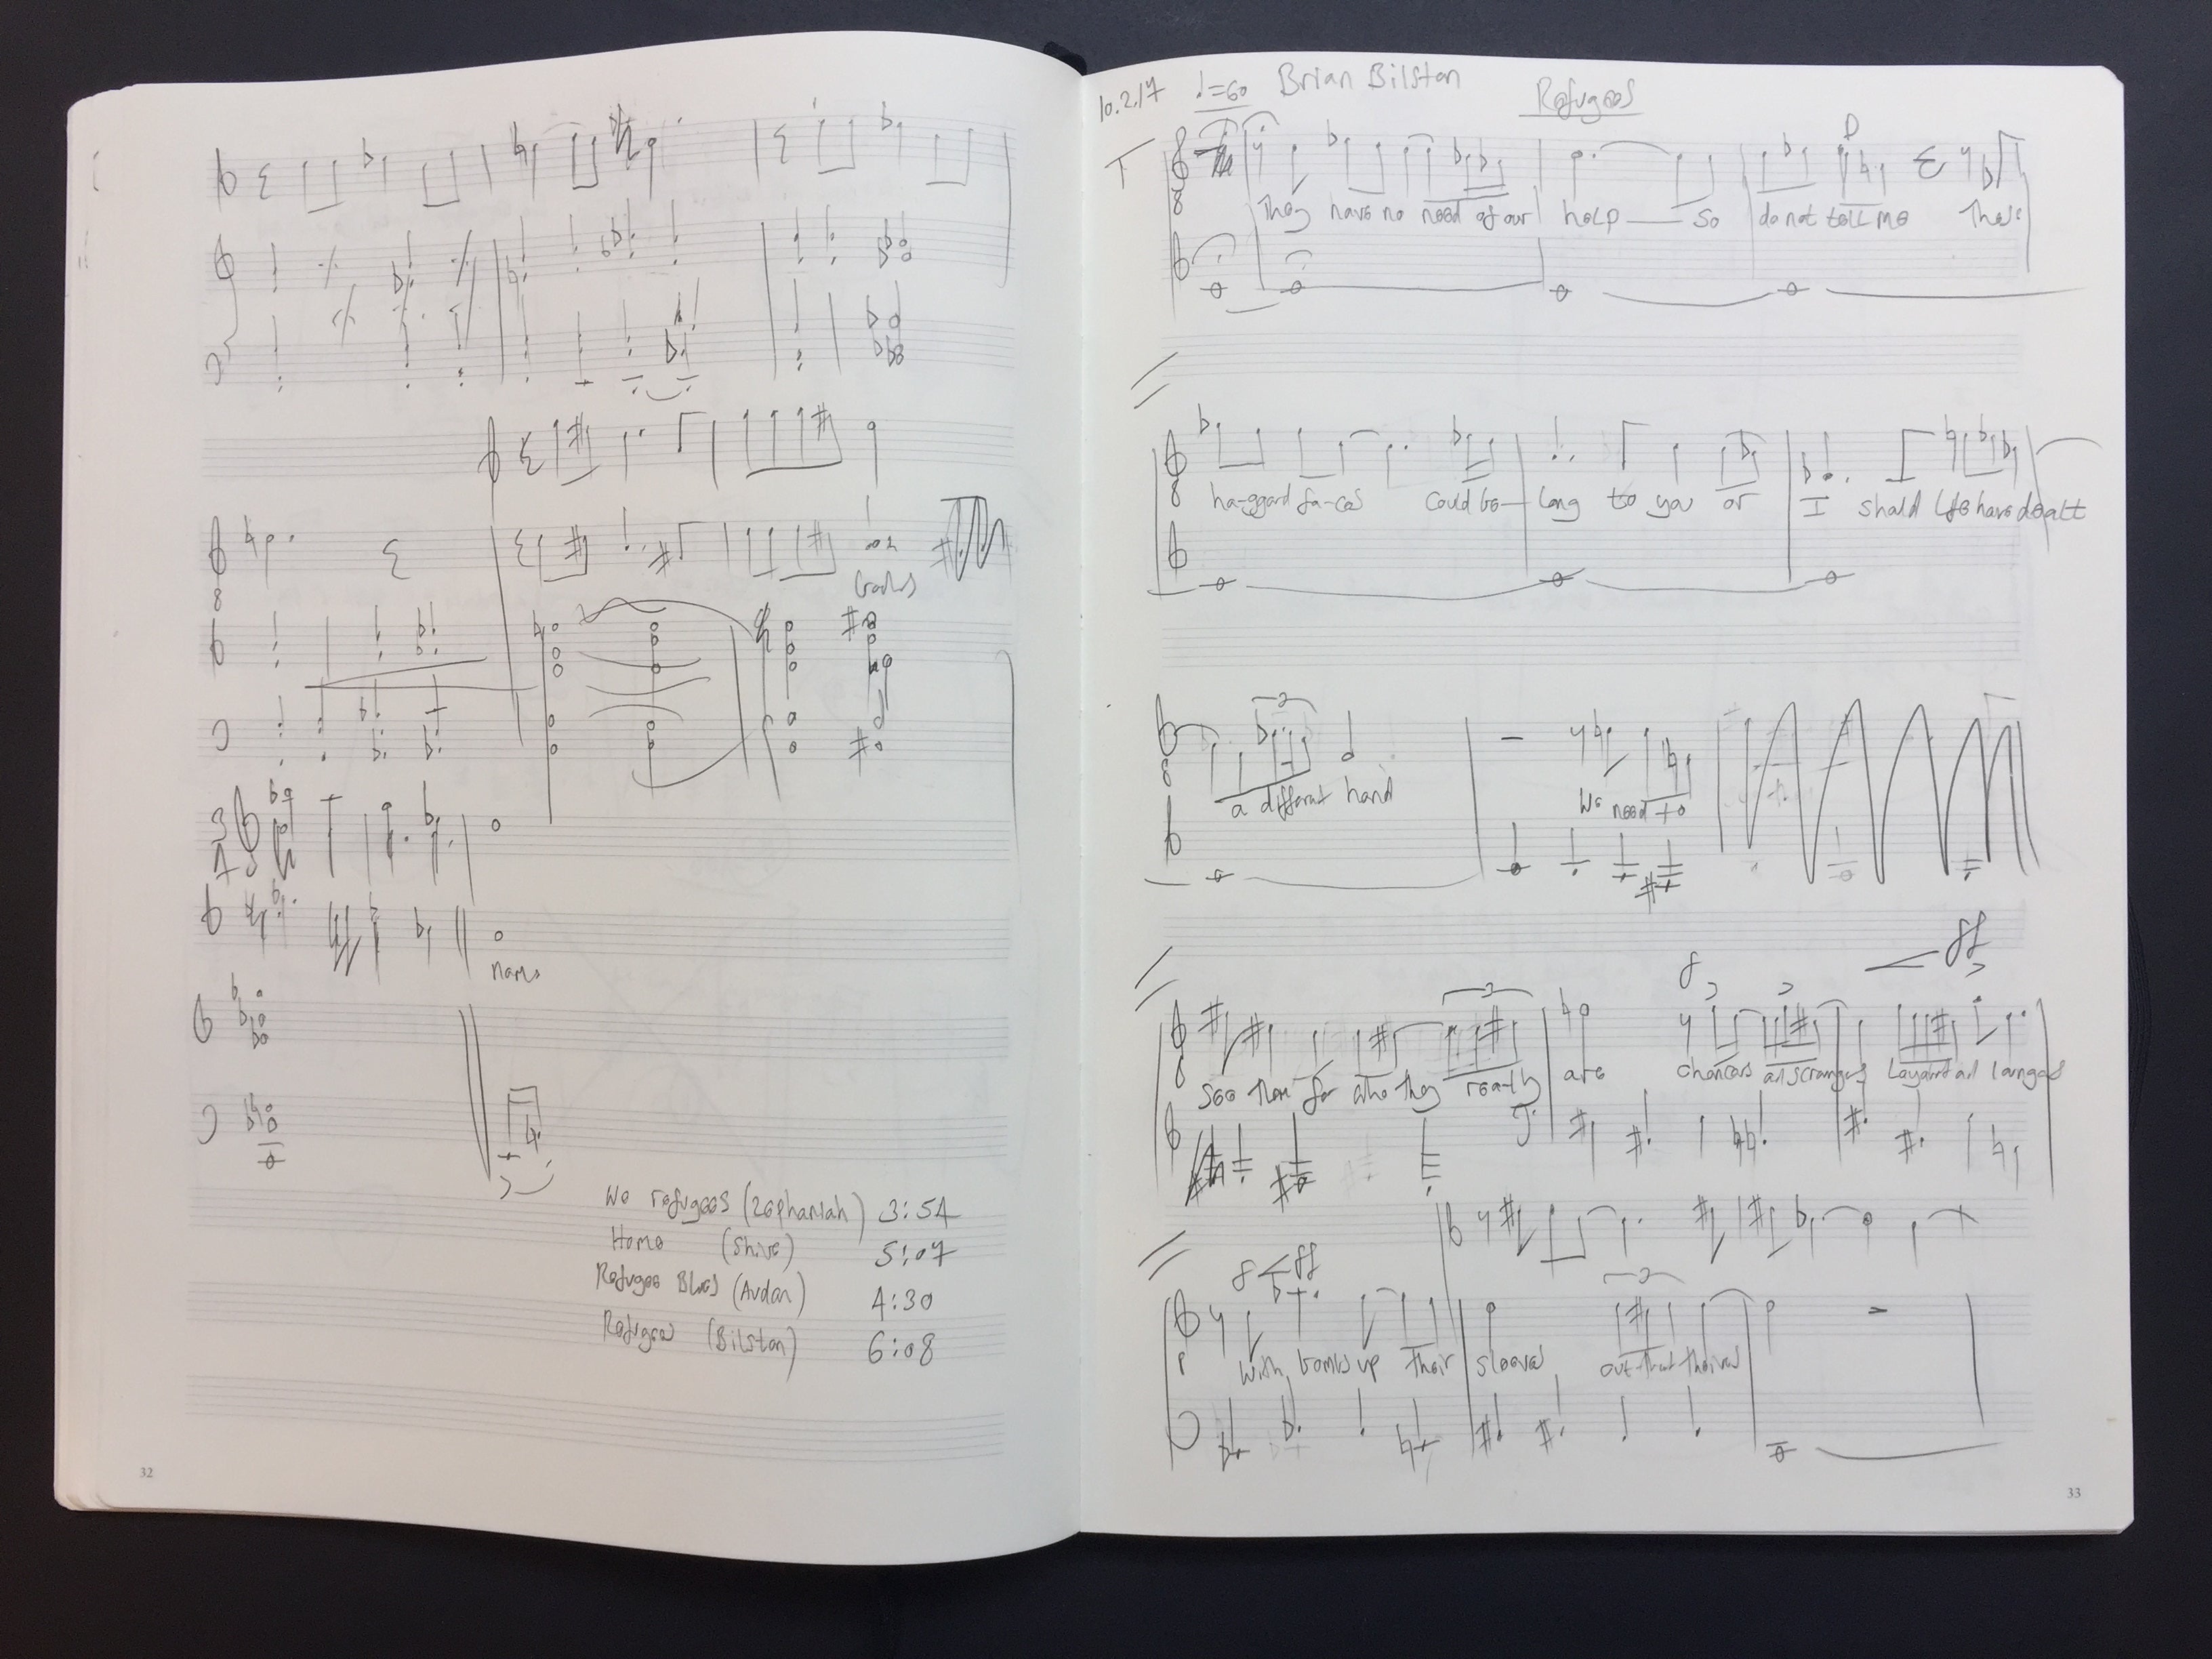 name
We refugees (Zephaniah) 3:54
Home (Shire) 5:07
Refugee Blues (Auden) 4:30
Refugees (Bilston) 6:08
32
10.2.17 ♩=60 Brian Bilston Refugees
p
T
8
They have no need of our help so do not tell me These
ha-ggard fa-ces could be- long to you or I should life have dealt
8
3
8
a different hand We need to
f ff
3
8
See them for who they really are chancers and scroungers Layabouts and loungers
f ff
3
With bombs up their sleeves cut-throats thieves
33